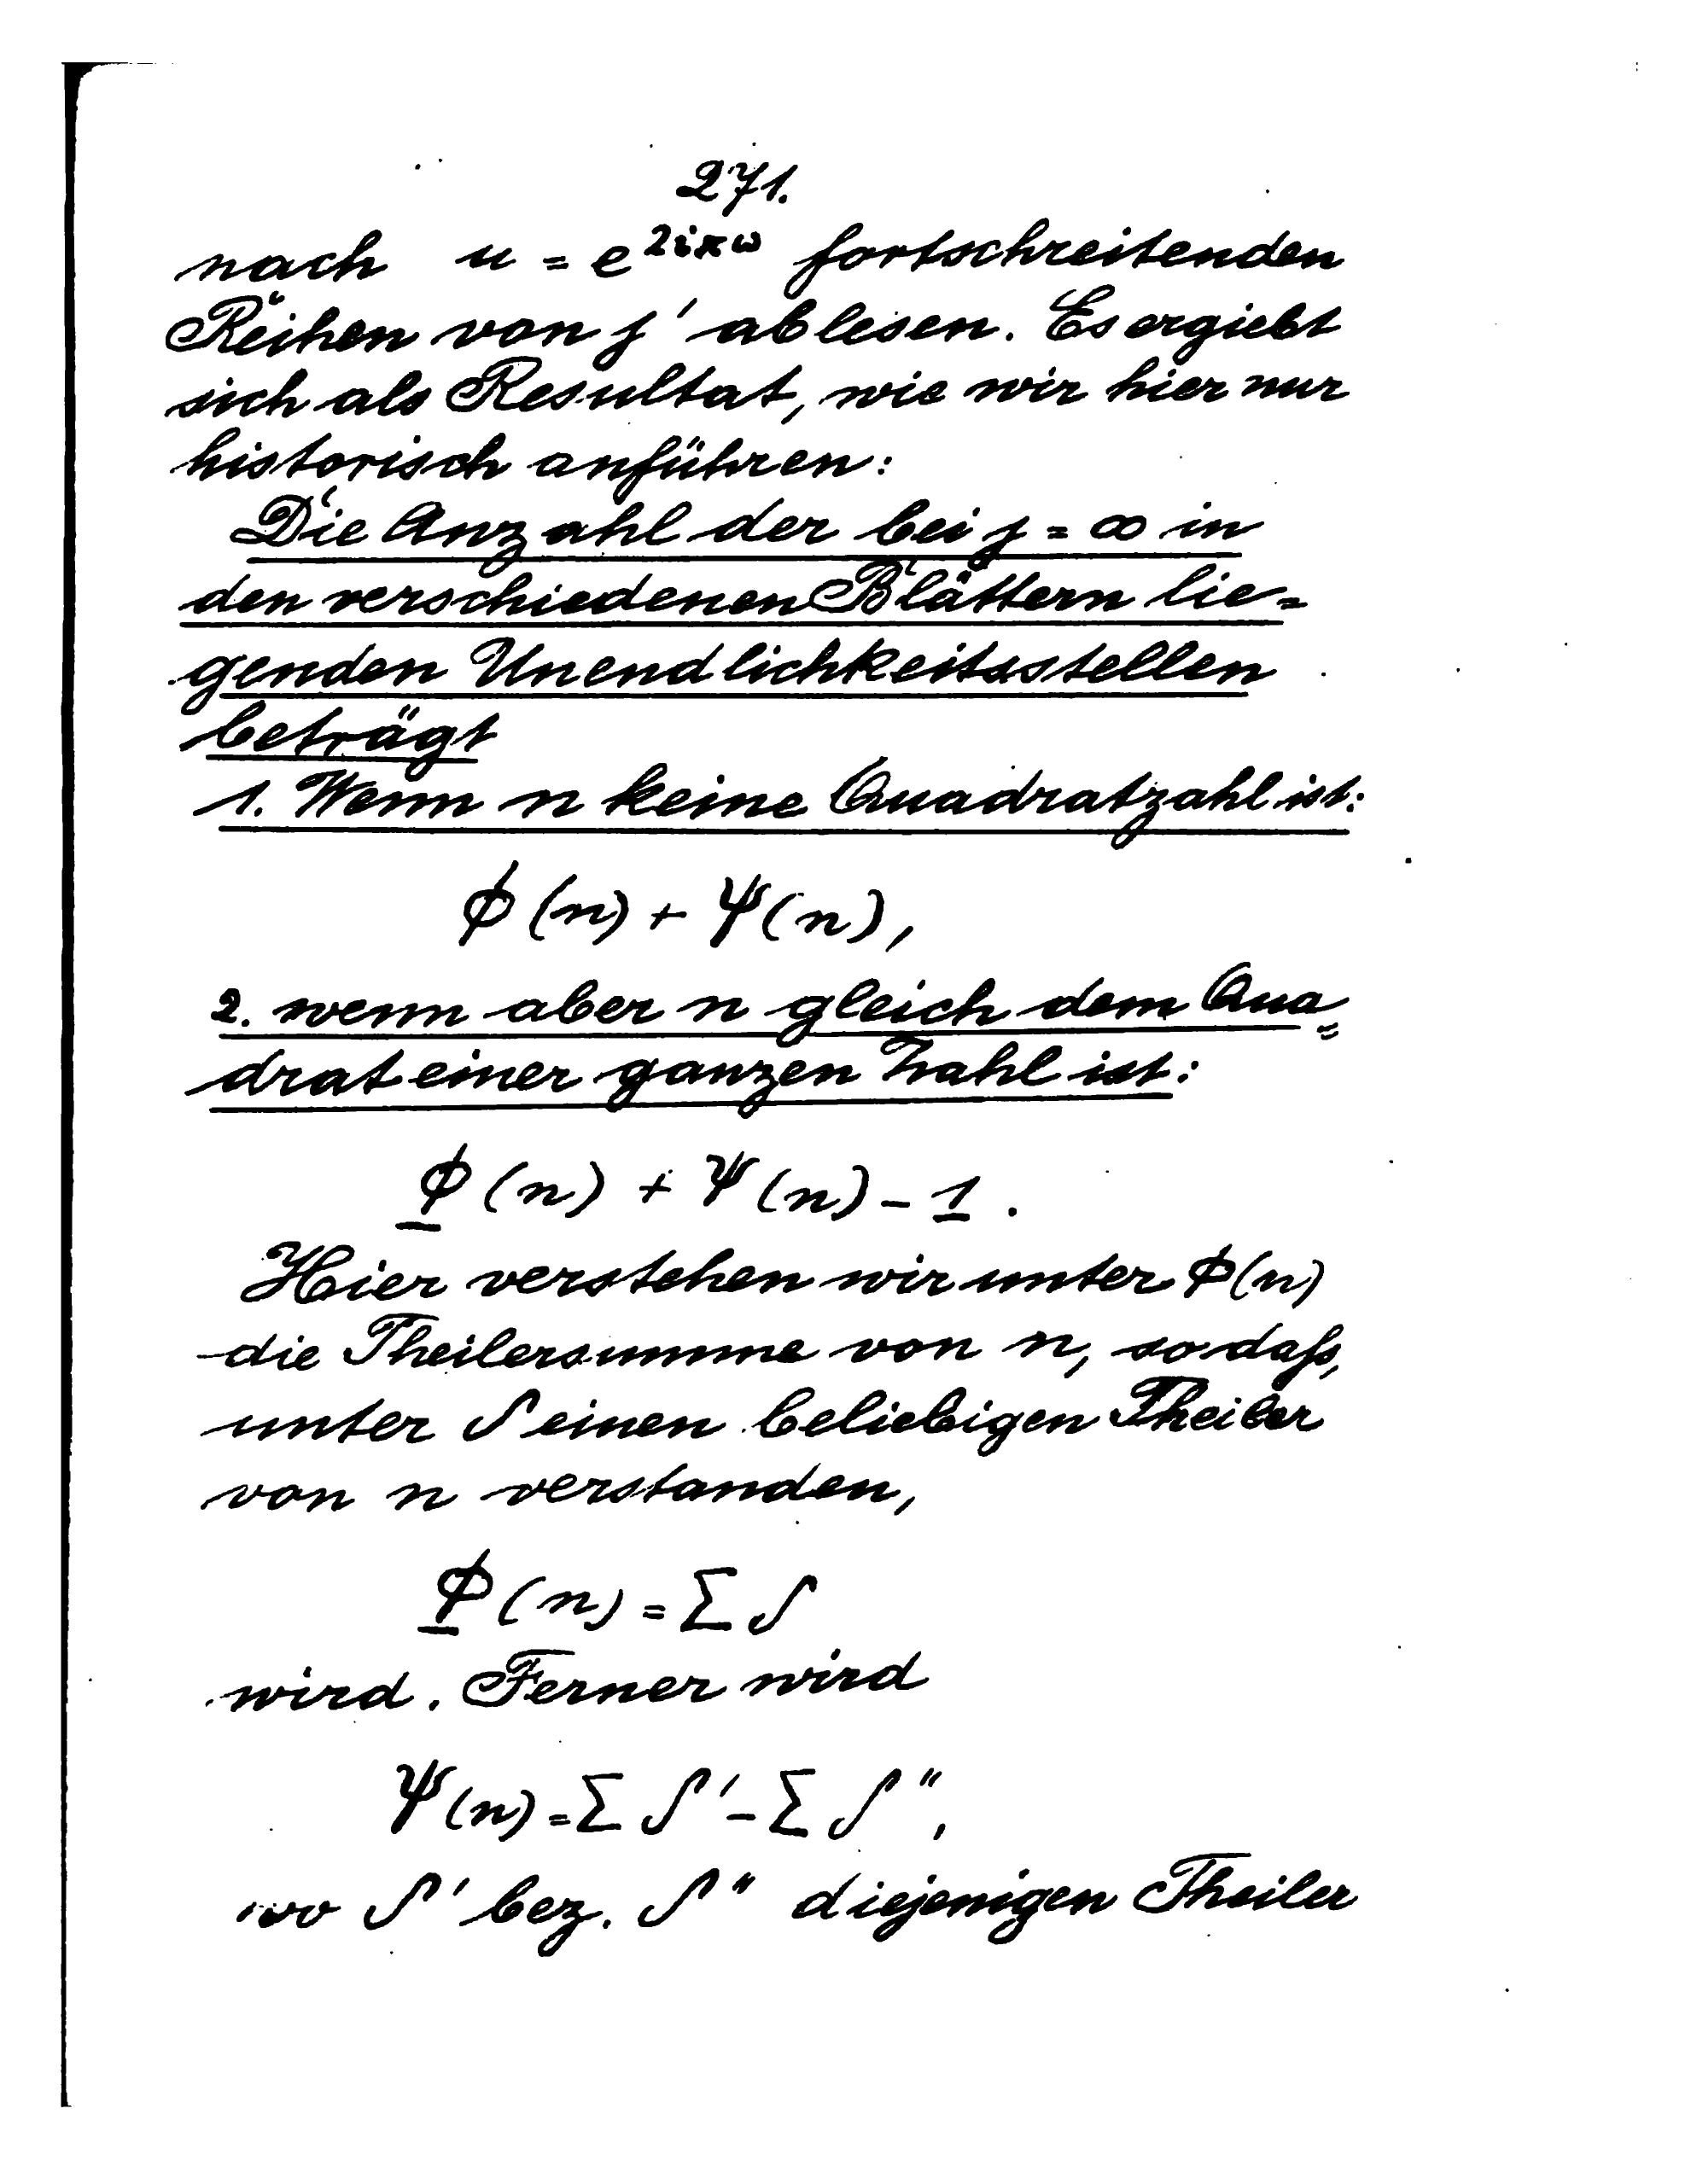 271.
nach u = e^{2iπω} fortschreitenden
Reihen von j' ablesen. Es ergiebt
sich als Resultat, wie wir hier nur
historisch anführen:
Die Anzahl der bei j = ∞ in
den verschiedenen Blättern lie=
genden Unendlichkeitsstellen
beträgt
1. Wenn n keine Quadratzahl ist:
Φ(n) + Ψ(n),
2. wenn aber n gleich dem Qua=
drat einer ganzen Zahl ist:
Φ(n) + Ψ(n) - 1.
Hier verstehen wir unter Φ(n)
die Theilersumme von n, so daß,
unter δ einen beliebigen Theiler
von n verstanden,
Φ(n) = Σ δ
wird. Ferner wird
Ψ(n) = Σ δ' - Σ δ'',
wo δ' bez. δ'' diejenigen Theiler